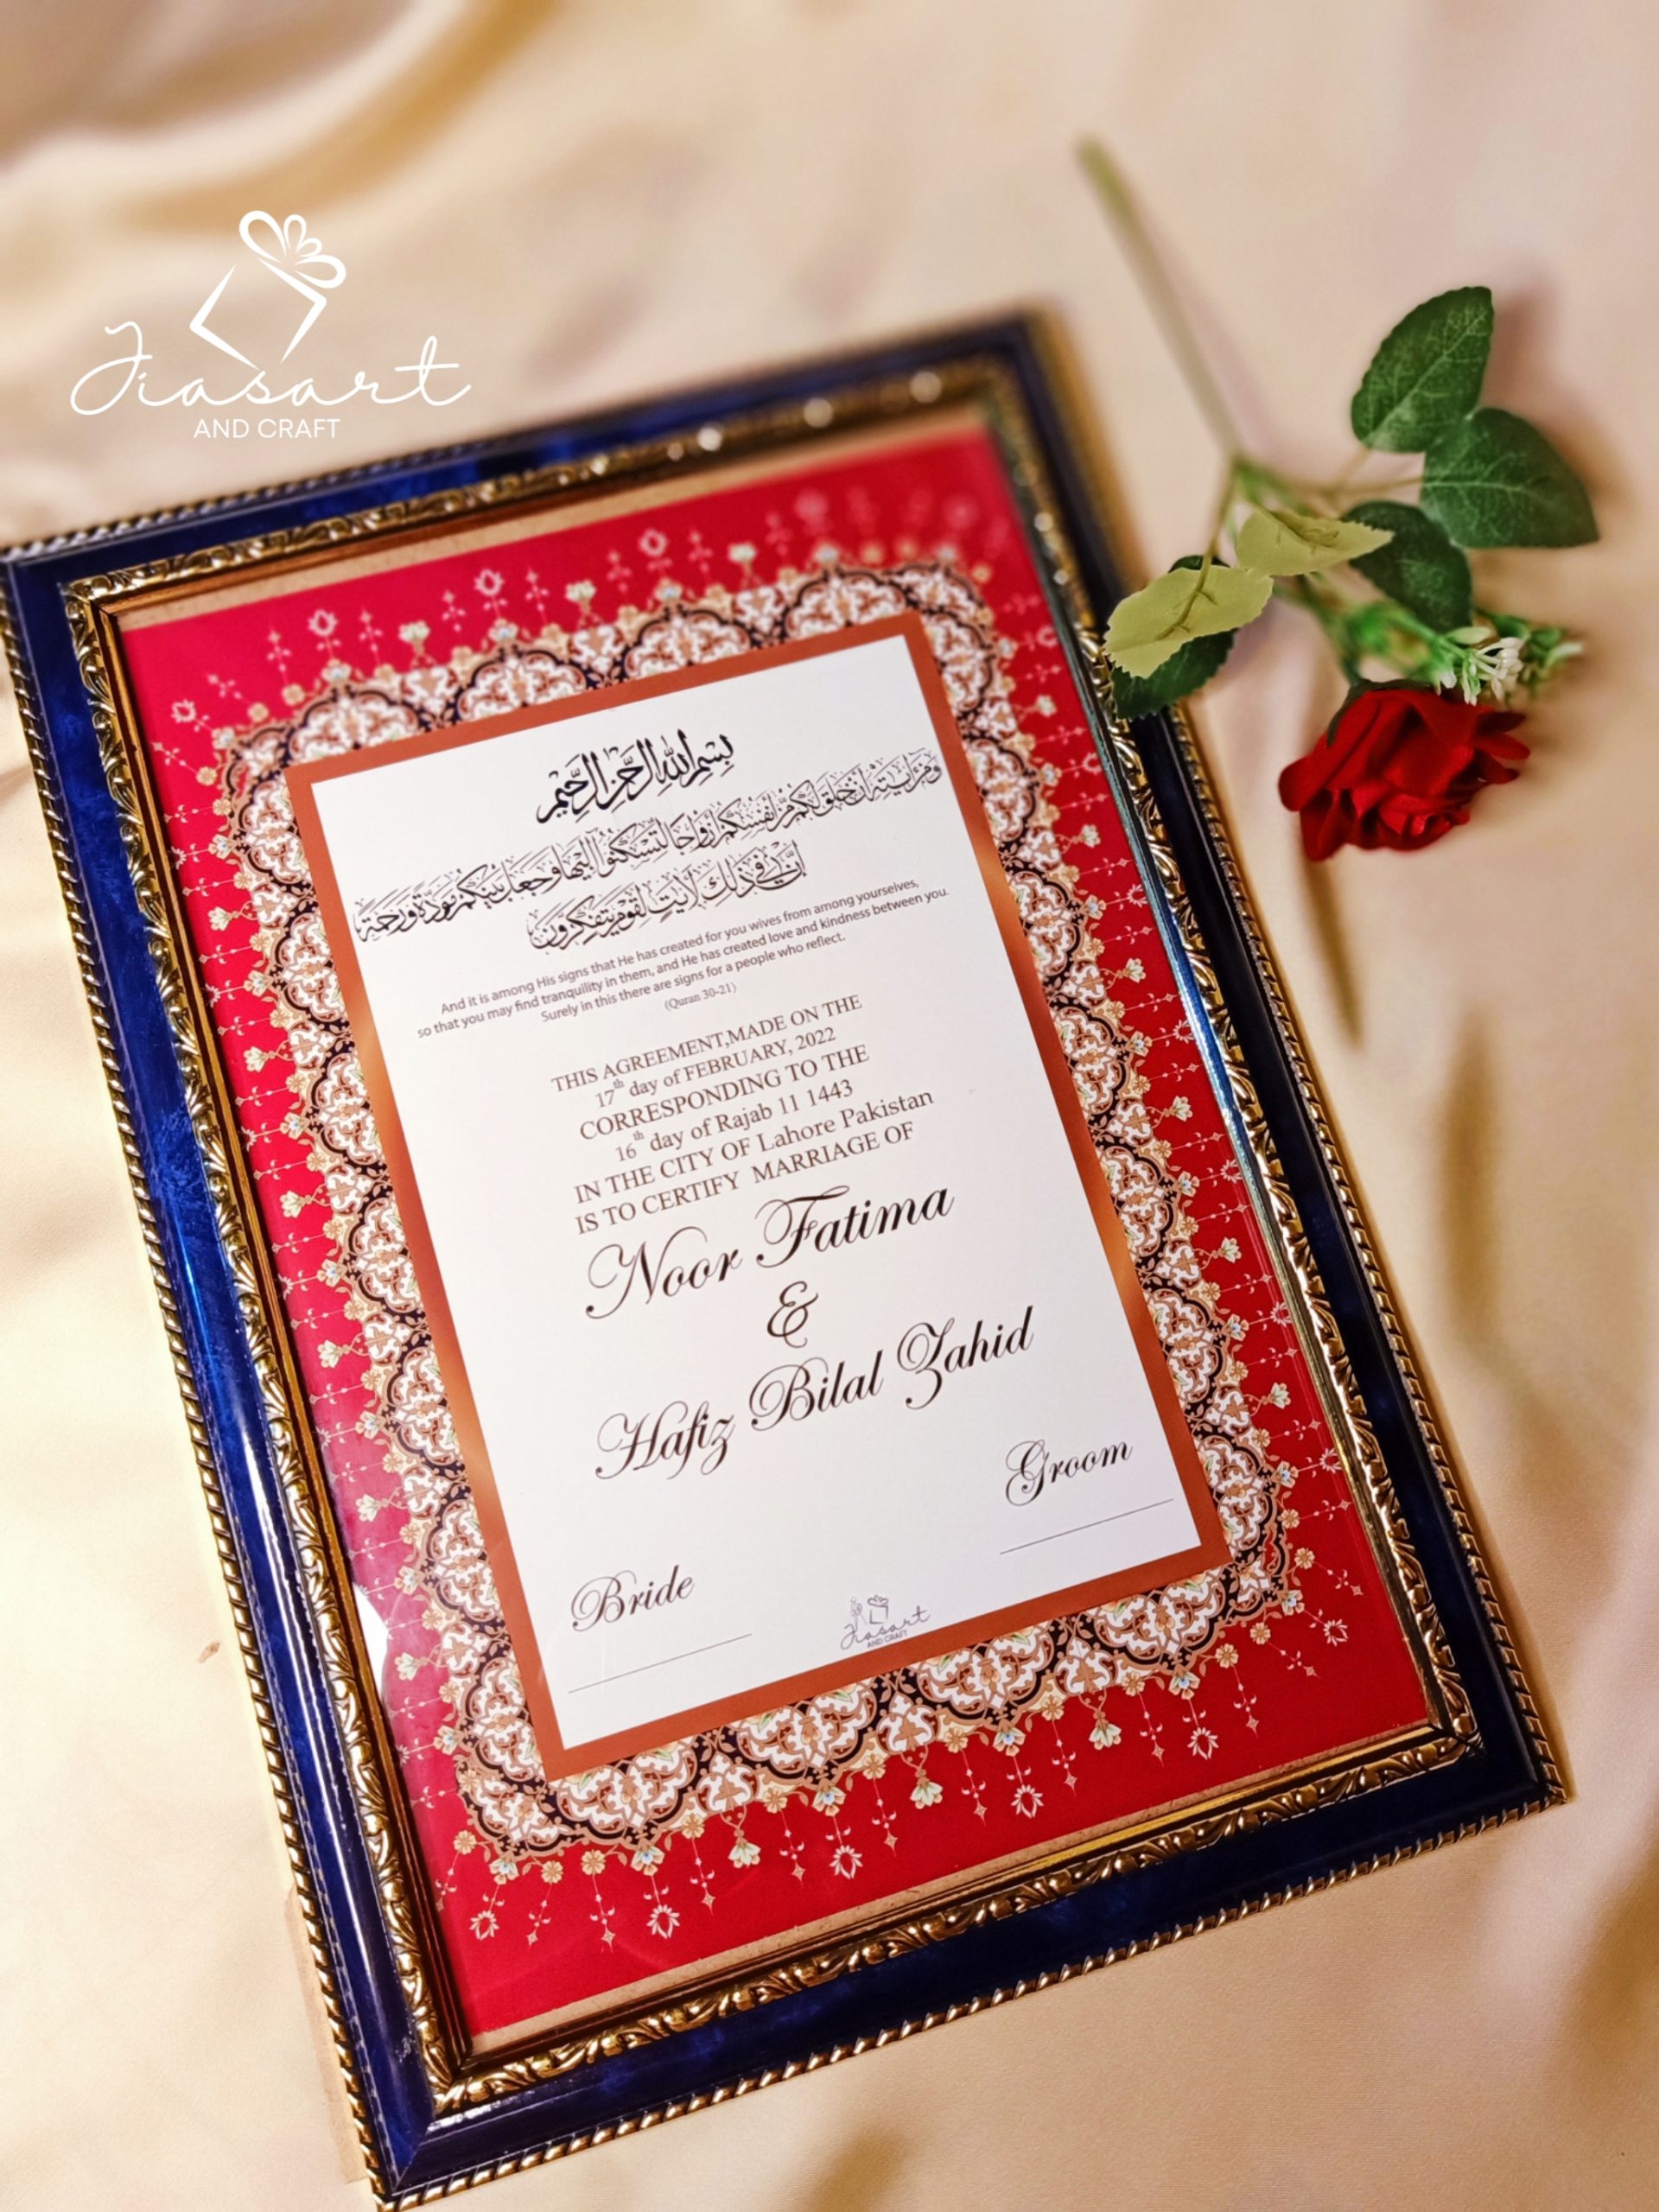 Jiasart
AND CRAFT
بِسْمِ اللهِ الرَّحْمٰنِ الرَّحِيْمِ
وَمِنْ اٰيٰتِهٖٓ اَنْ خَلَقَ لَكُمْ مِّنْ اَنْفُسِكُمْ اَزْوَاجًا لِّتَسْكُنُوْٓا اِلَيْهَا وَجَعَلَ بَيْنَكُمْ مَّوَدَّةً وَّرَحْمَةً
اِنَّ فِيْ ذٰلِكَ لَاٰيٰتٍ لِّقَوْمٍ يَّتَفَكَّرُوْنَ
And it is among His signs that He has created for you wives from among yourselves,
so that you may find tranquility in them, and He has created love and kindness between you.
Surely in this there are signs for a people who reflect.
(Quran 30-21)
THIS AGREEMENT,MADE ON THE
17th day of FEBRUARY, 2022
CORRESPONDING TO THE
16th day of Rajab 11 1443
IN THE CITY OF Lahore Pakistan
IS TO CERTIFY MARRIAGE OF
Noor Fatima
&
Hafiz Bilal Zahid
Groom
Bride
Jiasart
AND CRAFT